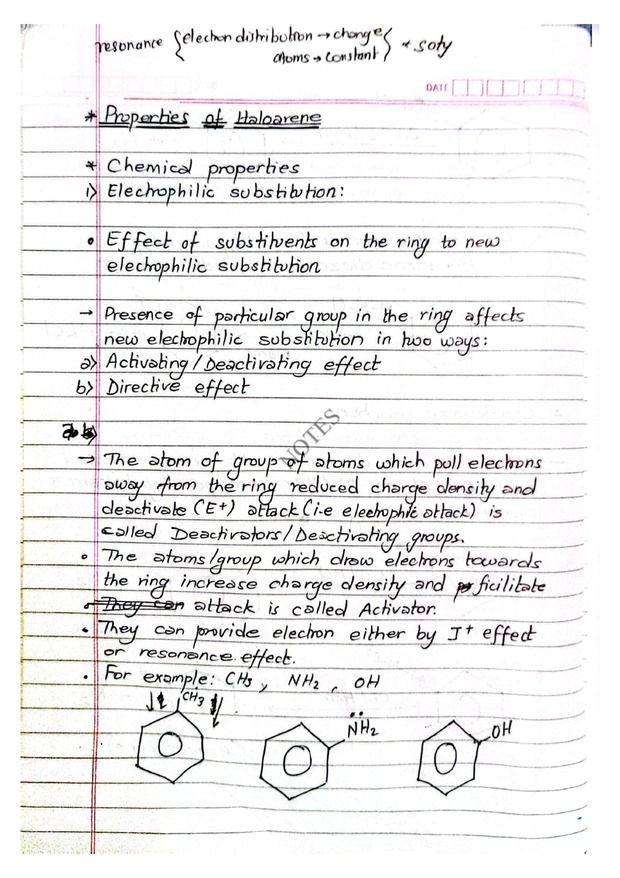 resonance {electron distribution → change
atoms → constant} * soty
DATE
* Properties of Haloarene
* Chemical properties
1) Electrophilic substitution:
• Effect of substituents on the ring to new
electrophilic substitution
→ Presence of particular group in the ring affects
new electrophilic substitution in two ways:
a) Activating / Deactivating effect
b) Directive effect
NOTES
→ The atom of group of atoms which pull electrons
away from the ring reduced charge density and
deactivate (E+) attack (i.e electrophilic attack) is
called Deactivators/Deactivating groups.
• The atoms/group which draw electrons towards
the ring increase charge density and ficilitate
They can attack is called Activator.
• They can provide electron either by I+ effect
or resonance effect.
• For example: CH3, NH2, OH
CH3
NH2
OH